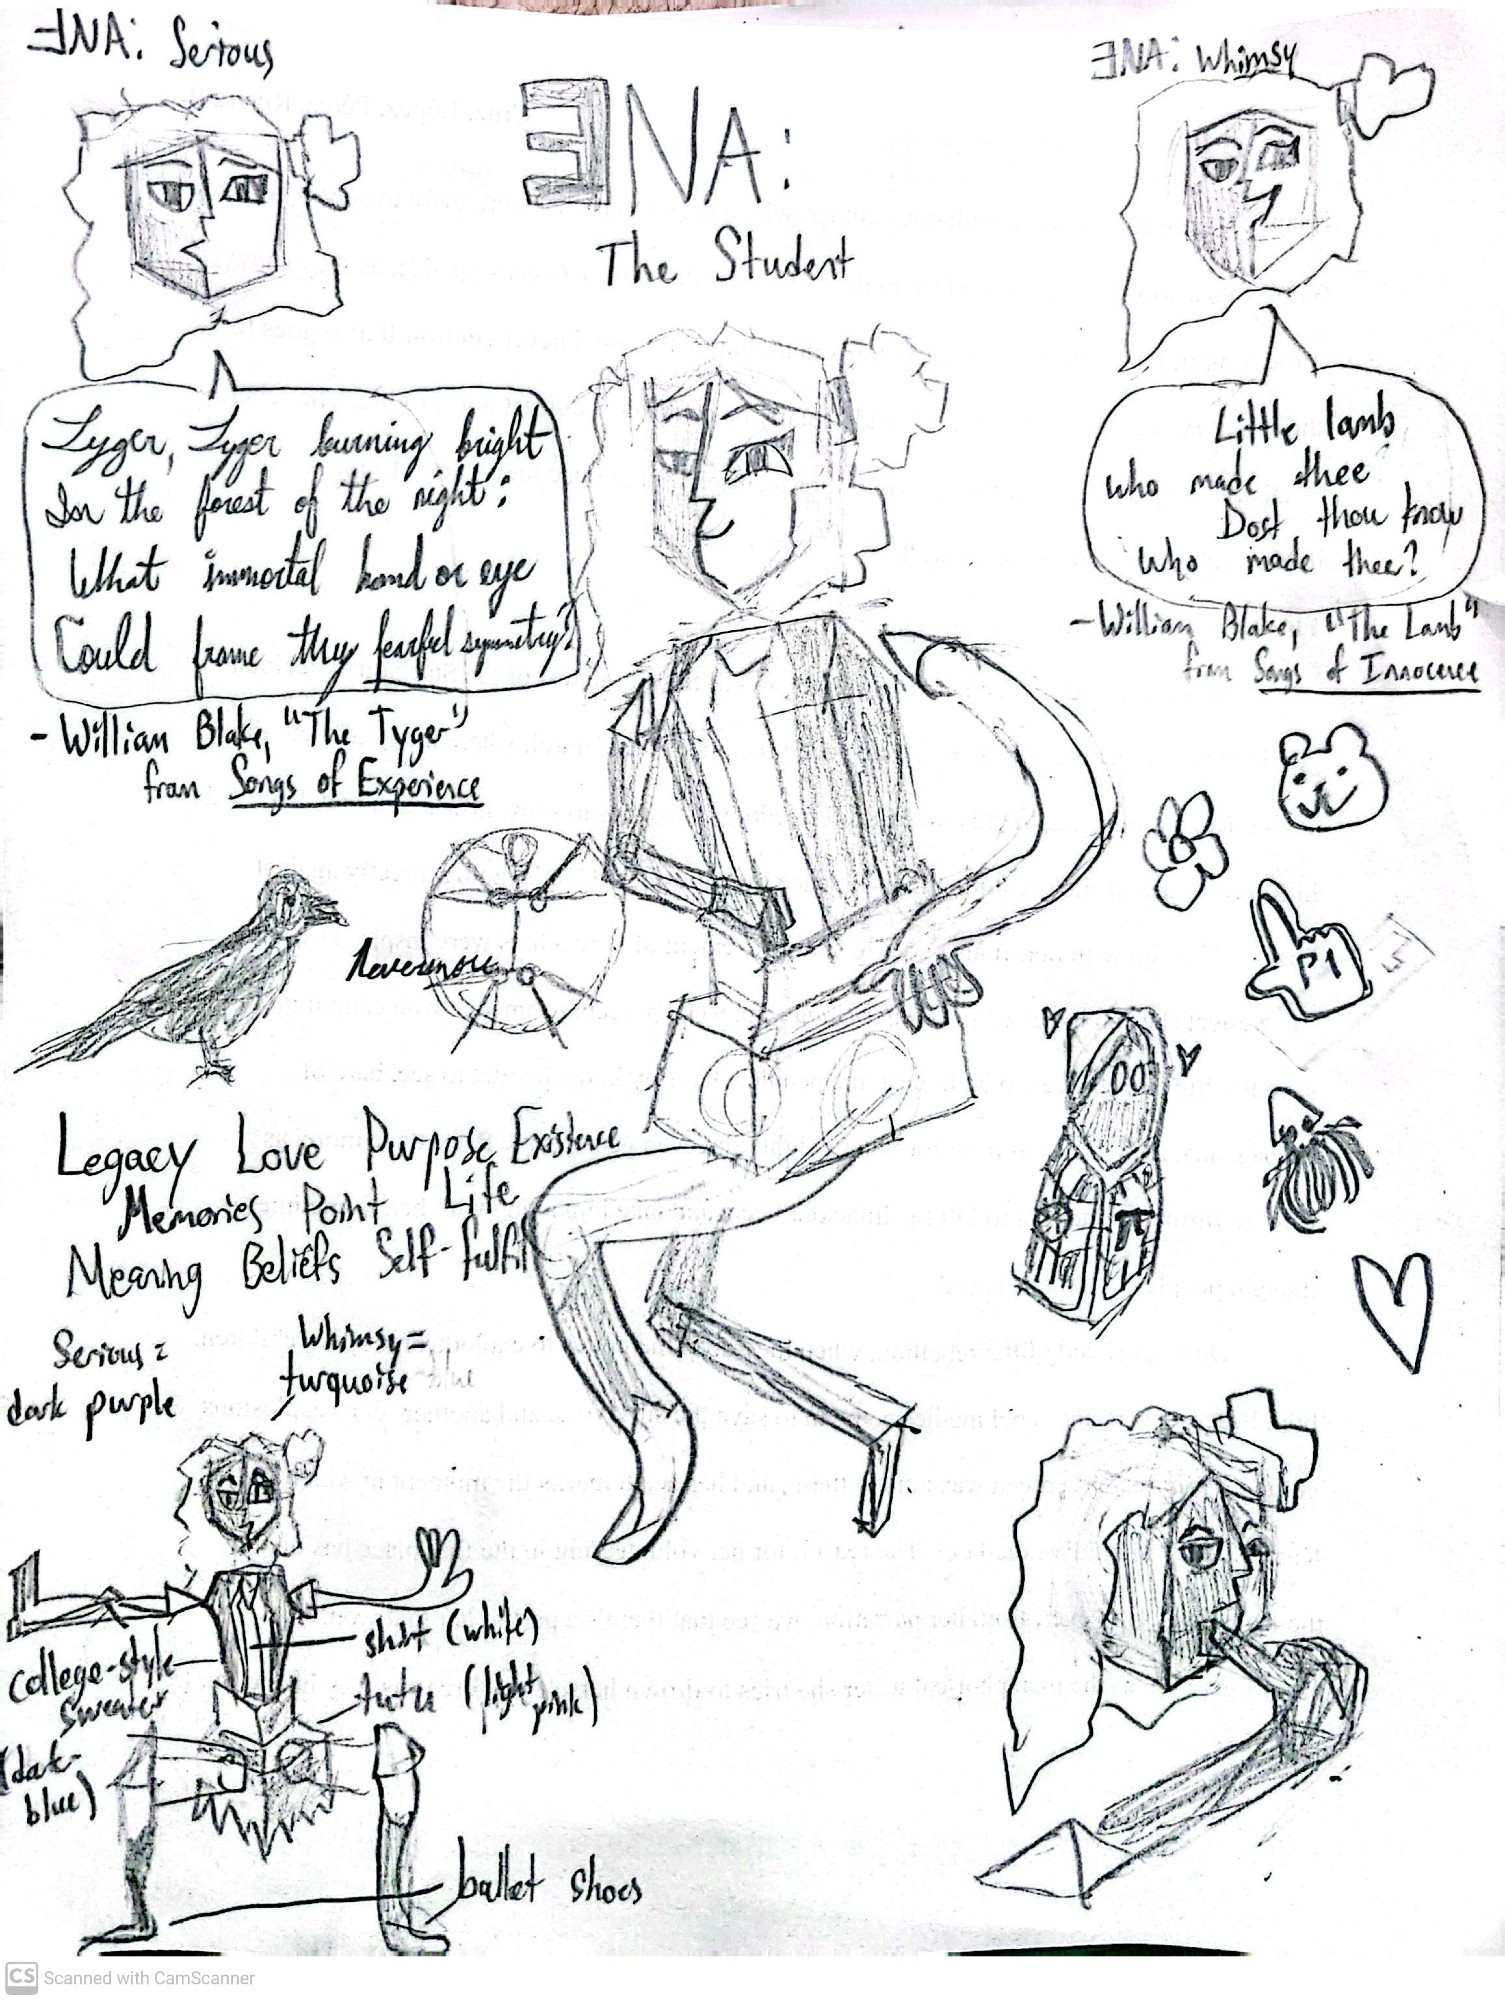 ƎNA: Serious
ƎNA:
The Student
ƎNA: Whimsy
Tyger, Tyger burning bright
In the forest of the night:
What immortal hand or eye
Could frame thy fearful symmetry?
- William Blake, "The Tyger"
from Songs of Experience
Little lamb
who made thee
Dost thou know
who made thee?
- William Blake, "The Lamb"
from Songs of Innocence
nevermore
P1
Legacy Love Purpose Existence
Memories Point Life
Meaning Beliefs Self-fulfil
Serious =
dark purple
Whimsy =
turquoise
blue
shirt (white)
college-style
sweater
(dark
blue)
tutu (light
pink)
ballet shoes
CS Scanned with CamScanner